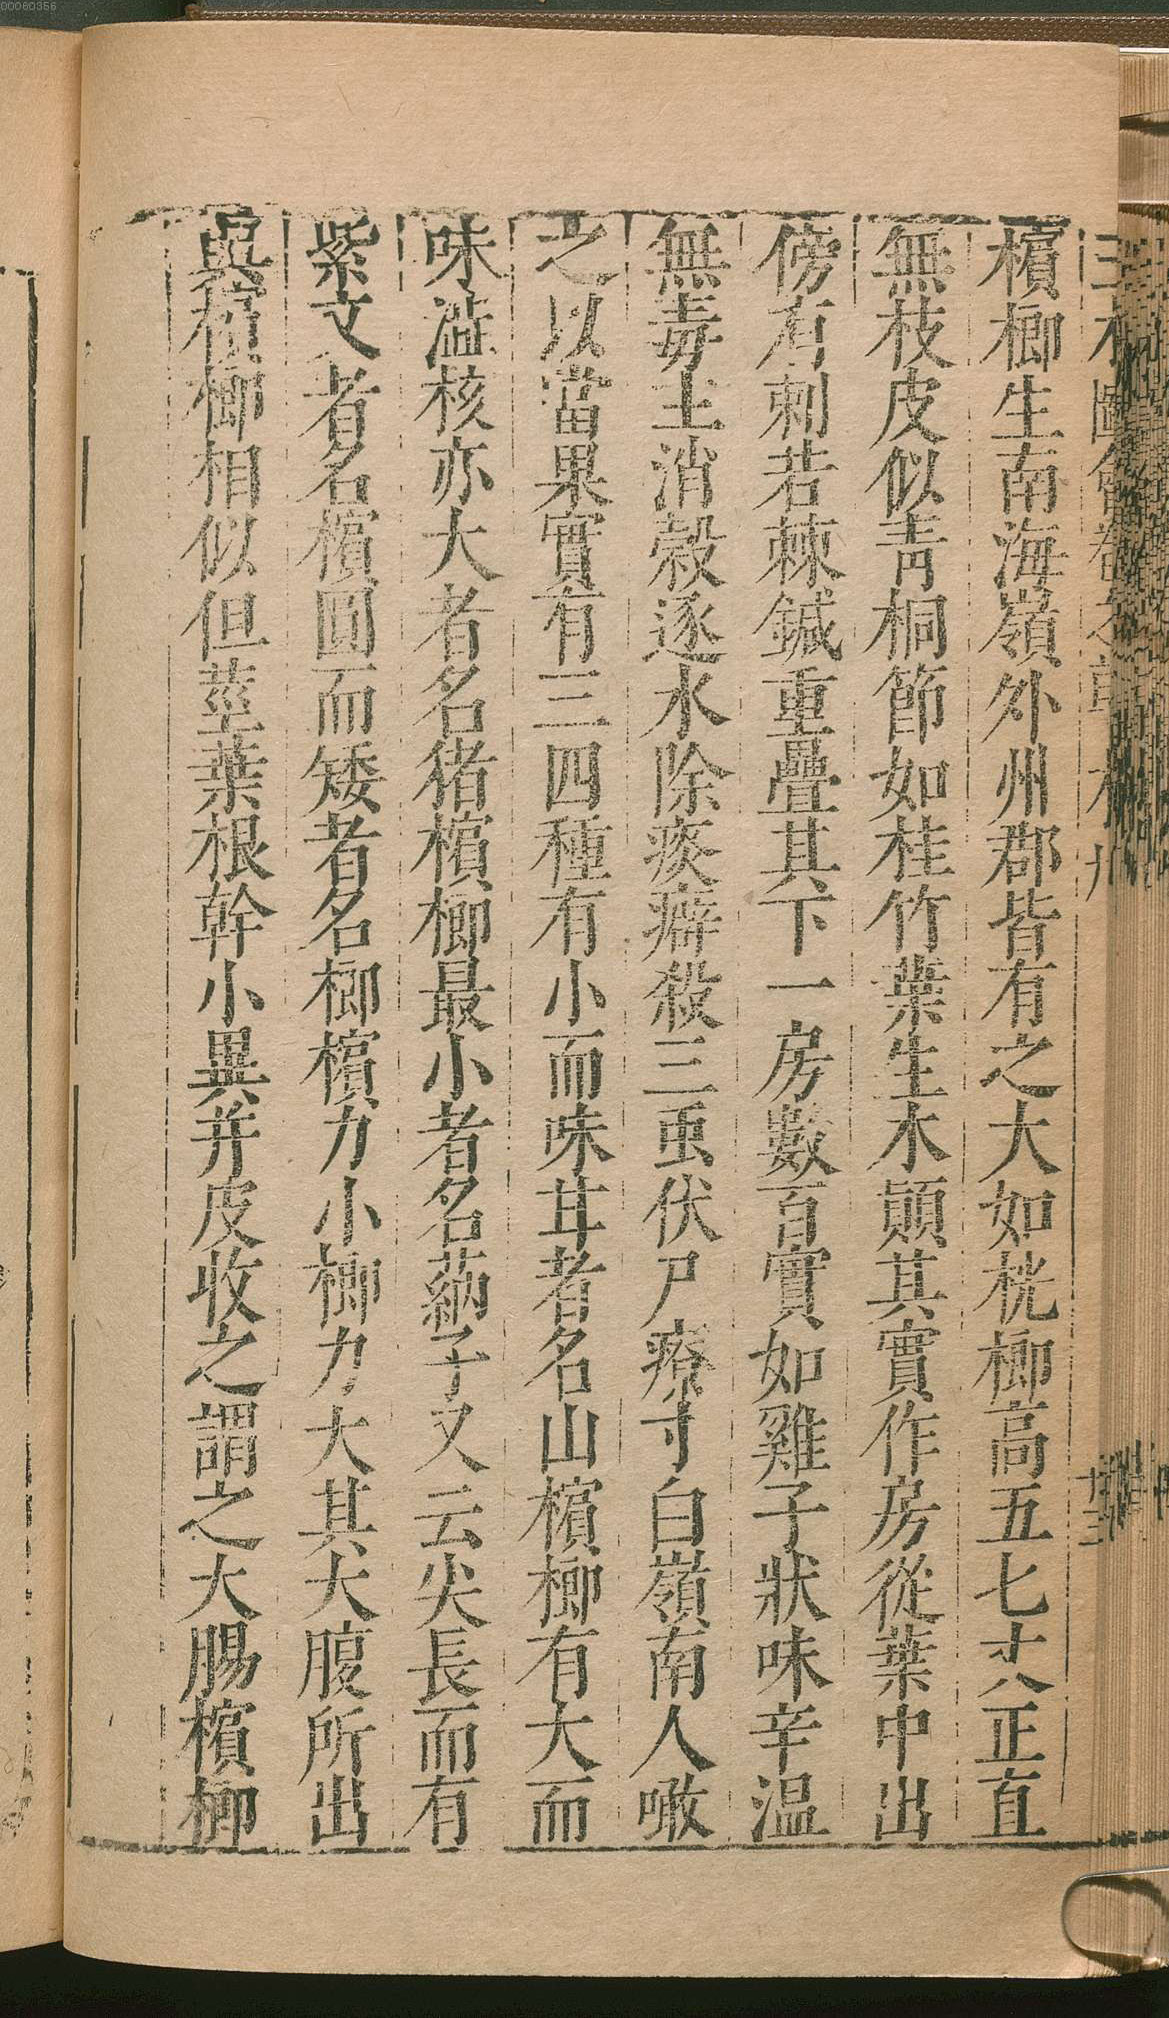 00060356
檳榔生南海嶺外州郡皆有之大如桄榔高五七丈正直
無枝皮似靑桐節如桂竹葉生木顚其實作房從葉中出
傍有刺若棘鍼重疊其下一房數百實如雞子狀味辛温
無毒主消穀逐水除痰癖殺三䖝伏尸療寸白嶺南人噉
之以當果實有三四種有小而味甘者名山檳榔有大而
味澁核亦大者名猪檳榔最小者名蒳子又云尖長而有
紫文者名檳圓而矮者名榔檳力小榔力大其大腹所出
與檳榔相似但莖葉根幹小異并皮收之謂之大腸檳榔